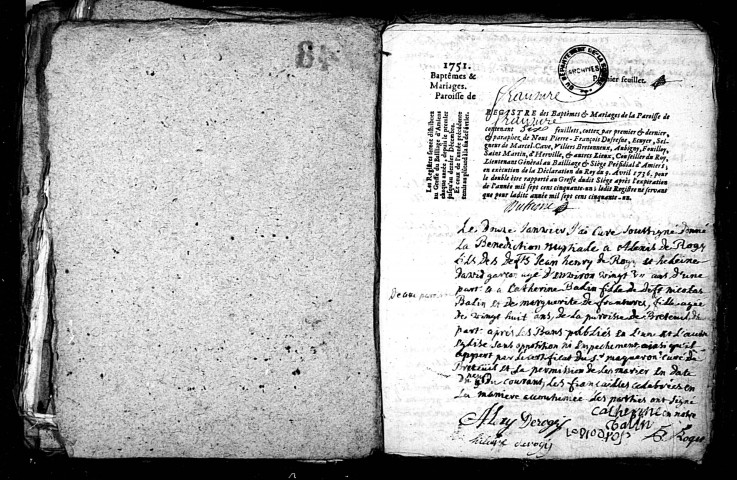 84
1751.
Baptêmes &
Mariages.
Paroisse de
DU DEPARTEMENT DE LA SOMME
ARCHIVES
Premier feuillet.
Les Registres seront distribuez
au Greffe du Bailliage d'Amiens
chaque année, depuis le premier
jusqu'au dernier Décembre.
Et ceux de l'année précédente
remis au plûtard à la fin de Février.
REGISTRE des Baptêmes & Mariages de la Paroisse de
contenant feuillets, cottez par premier & dernier,
& paraphez de Nous Pierre-François Dufresne, Ecuyer, Sei-
gneur de Marcel-Cave, Villers Bretonneux, Aubigny, Fouilloy,
Saint Martin, d'Herville, & autres Lieux, Conseiller du Roy,
Lieutenant Général au Bailliage & Siége Présidial d'Amiens,
en exécution de la Déclaration du Roy du 9. Avril 1736. pour
le double être rapporté au Greffe dudit Siége après l'expiration
de l'année mil sept cens cinquante-un; ledit Registre ne servant
que pour ladite année mil sept cens cinquante-un.
Dufresne
Le douze Janvier J'ai Curé soussigné donné
La Benediction nuptiale a Alexis de Rogy
fils des deffts Jean henry de Rogy et heleine
david garcon agé d'environ vingt ans d'une
part et a Catherine Balin fille de defft nicolas
Balin et de marguerite de fille agée
de vingt huit ans, de la paroisse de Breteuil, de
part après les Bans publiés en L'une et L'autre
Eglise sans opposition ni Empechement, ainsi qu'il
appert par le certificat du sr curé de
Breteuil et la permission de les marier en date
du du courant, les fiancailles celebrées en
La maniere accoutumée les parties ont signé
Catherine
Alexy Derogy
Balin
derogy